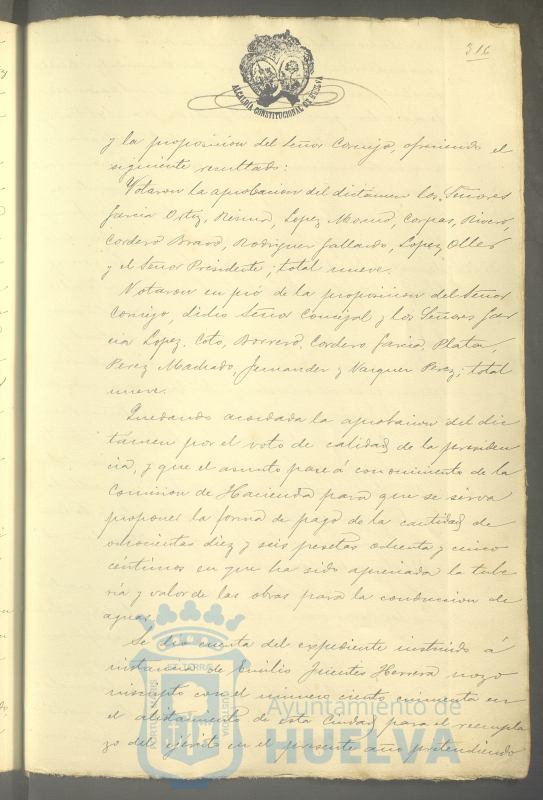 316
ALCALDIA CONSTITUCIONAL DE HUELVA
y la proposicion del Señor Cornejo, ofreciendo el
siguiente resultado:
Votaron la aprobacion del dictámen los Señores
Garcia Ortiz, Lopez Moreno, Corpas, Rivero,
Cordero Bravo, Rodriguez Gallardo, Lopez, Oller
y el Señor Presidente; total nueve.
Votaron en pró de la proposicion del Señor
Cornejo, dicho Señor Concejal y los Señores Gar
cia Lopez, Coto, Borrero, Cordero Garcia, Plata,
Perez Machado, Fernandez y Vazquez Perez; total
nueve.
Quedando acordada la aprobacion del dic
támen por el voto de calidad de la presiden
cia, y que el asunto pase á conocimiento de la
Comision de Hacienda para que se sirva
proponer la forma de pago de la cantidad de
ochocientas diez y seis pesetas ochenta y cinco
céntimos en que ha sido apreciada la tube
ria y valor de las obras para la conduccion de
aguas.
Se dió cuenta del expediente instruido á
instancia de Emilio Fuentes Herrera mozo
inscripto con el número ciento cincuenta en
el alistamiento de esta Ciudad para el reempla
zo del ejército en el presente año pretendiendo
Ayuntamiento de
HUELVA